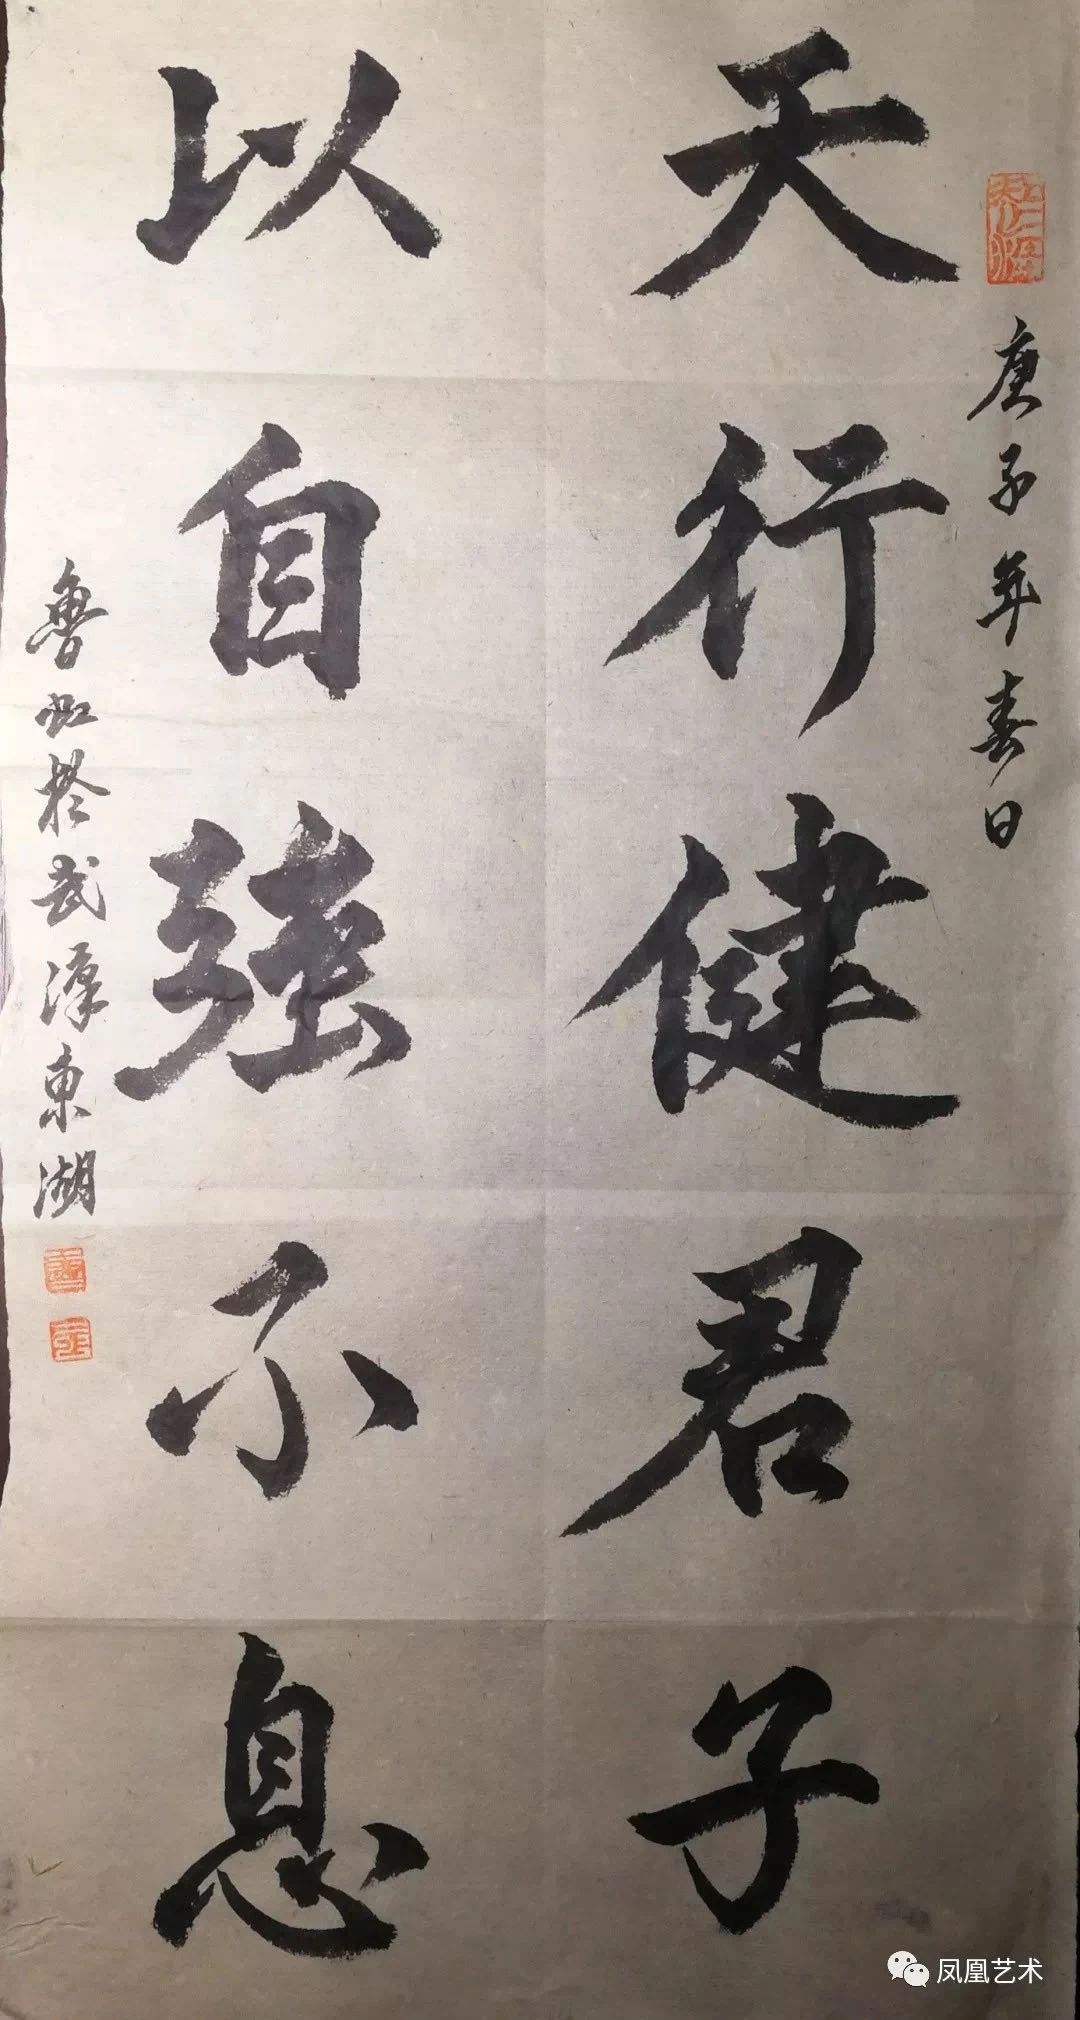 庚子年春日
天行健君子
以自強不息
魯虹於武漢東湖
凤凰艺术